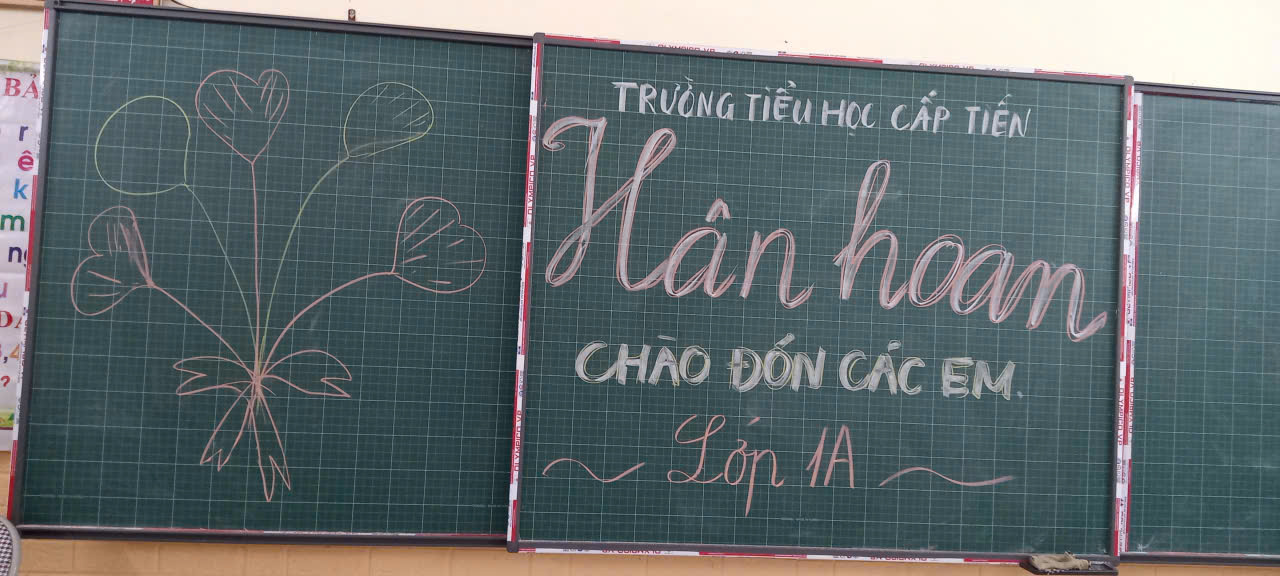 TRƯỜNG TIỂU HỌC CẤP TIẾN
Hân hoan
CHÀO ĐÓN CÁC EM.
Lớp 1A
BẢ
r
ê
k
m